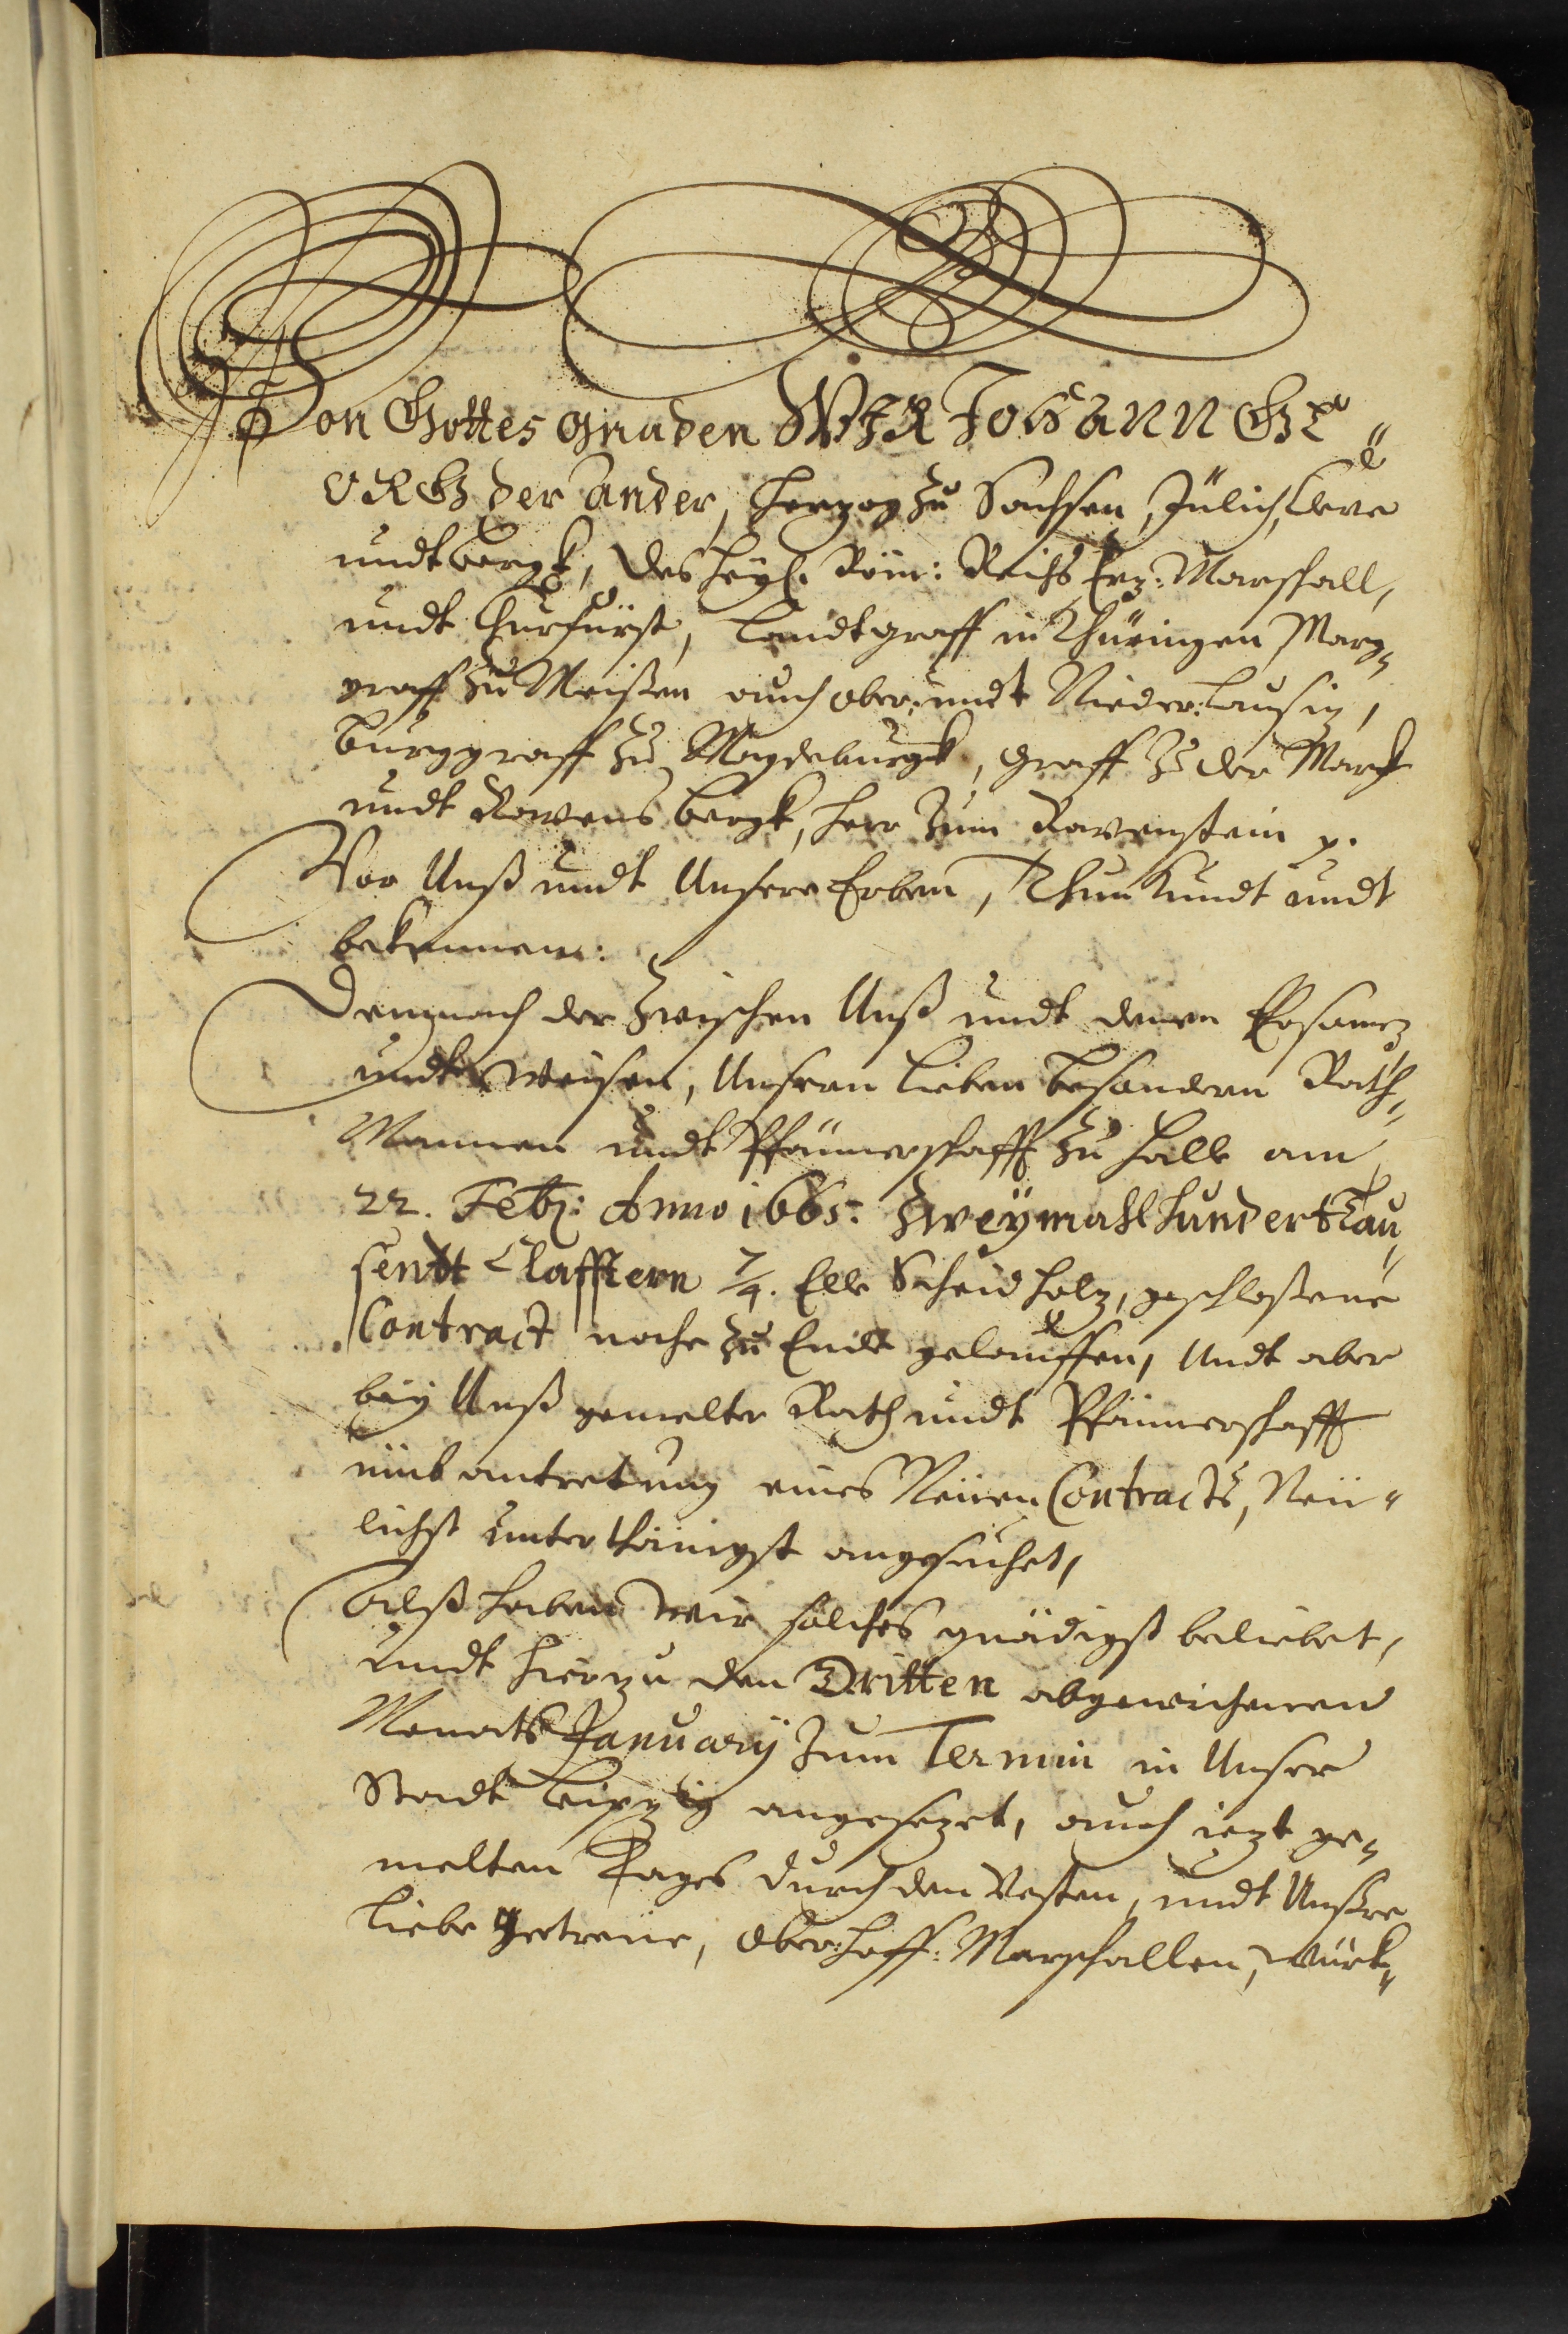 Von Gottes gnaden WIR Johann GE„
ORG der Ander, Herzog zu Sachsen, Jülich, Cleve
undt Bergk, des Heyl. Röm: Reichs Erz-Marschall,
undt Churfürst, Landtgraff in Thüringen Marg„
graff zu Meißen auch Ober- undt Nieder-Lausiz,
Burggraff zu Magdeburgk, Graff zu der Marck
undt Ravensbergk, Herr zum Ravenstein p.
Vor Unß undt Unsere Erben, Thun kundt undt
bekennen:
Demnach der zwischen Unß undt denen Ersamen
undt Weisen, Unsern lieben besondern Rath„
Mannen undt Pfännerschafft zu Halle am
22. Feb: Anno 1665. Zweymahlhunderttau„
sentt Clafftern 7/4. Elle Scheidholz, geschloßene
Contract nahe zu Ende gelauffen, Undt aber
bey Unß gemelter Rath undt Pfännerschafft
umb antretung eines Neüen Contracts, Neü„
lichst unterthänigst angesuchet,
Alß haben wir solches gnädigst beliebet,
undt hierzu den Dritten abgewichenen
Monats January zum Termin in Unser
Stadt Leipzig angesezet, auch iezt ge„
melten Tages durch den Vesten, undt Unßre
liebe getreüe, Ober-Hoff-Marschallen, Würck„